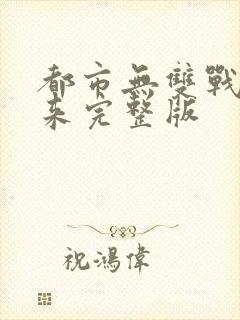 都市無雙戰
未完整版
祝鴻偉